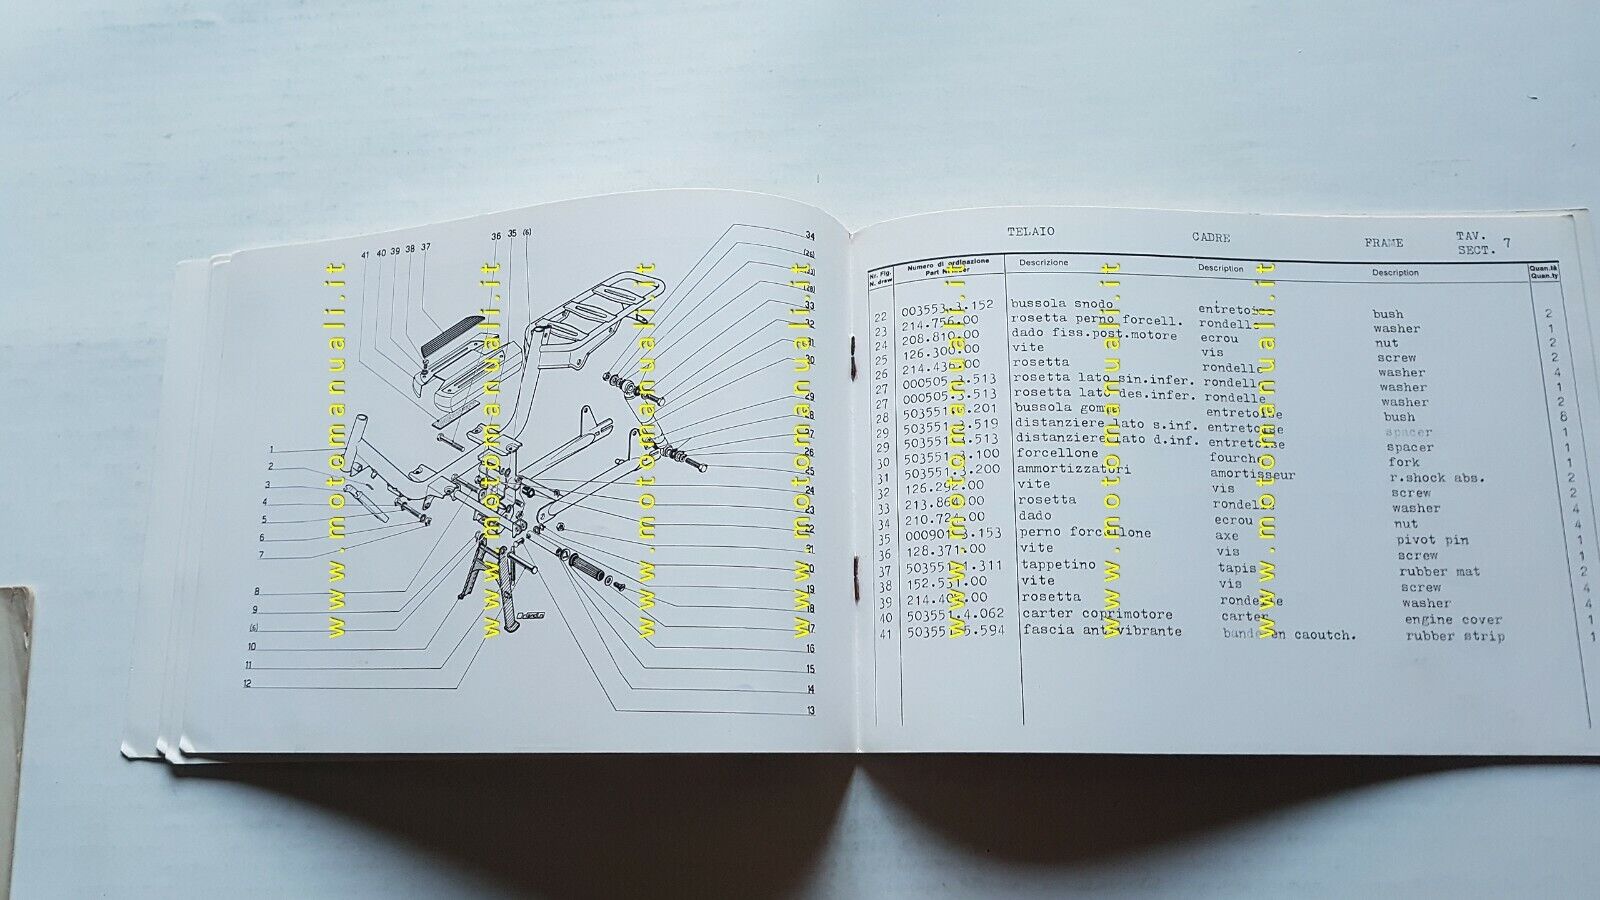 41 40 39 38 37 36 35 (6)
34
(26)
(28)
33
32
31
30
29
28
27
26
25
24
23
22
21
20
19
18
17
16
15
14
13
1
2
3
4
5
6
7
8
9
(6)
10
11
12
www.motomanuali.it
www.motomanuali.it
www.motomanuali.it
www.motomanuali.it
TELAIO CADRE FRAME TAV. SECT. 7
Nr. Fig. N. draw Numero di ordinazione Part Number Descrizione Description Description Quan.tà Quan.ty
22 003553.3.152 bussola snodo entretoise bush 2
23 214.756.00 rosetta perno forcell. rondelle washer 1
24 208.810.00 dado fiss.post.motore ecrou nut 2
25 126.300.00 vite vis screw 2
26 214.436.00 rosetta rondelle washer 4
27 000505.3.513 rosetta lato sin.infer. rondelle washer 1
27 000505.3.513 rosetta lato des.infer. rondelle washer 2
28 503551.3.201 bussola gomma entretoise bush 8
29 503551.3.519 distanziere lato s.inf. entretoise spacer 1
29 503551.3.513 distanziere lato d.inf. entretoise spacer 1
30 503551.3.100 forcellone fourche fork 1
31 503551.3.200 ammortizzatori amortisseur r.shock abs. 2
32 126.292.00 vite vis screw 2
33 213.864.00 rosetta rondelle washer 4
34 210.724.00 dado ecrou nut 4
35 000901.3.153 perno forcellone axe pivot pin 1
36 128.371.00 vite vis screw 1
37 503551.1.311 tappetino tapis rubber mat 2
38 152.531.00 vite vis screw 4
39 rosetta rondelle washer 4
40 503551.4.062 carter coprimotore carter engine cover 1
41 503551.5.594 fascia antivibrante bande en caoutch. rubber strip 1
www.motomanuali.it
www.motomanuali.it
www.motomanuali.it